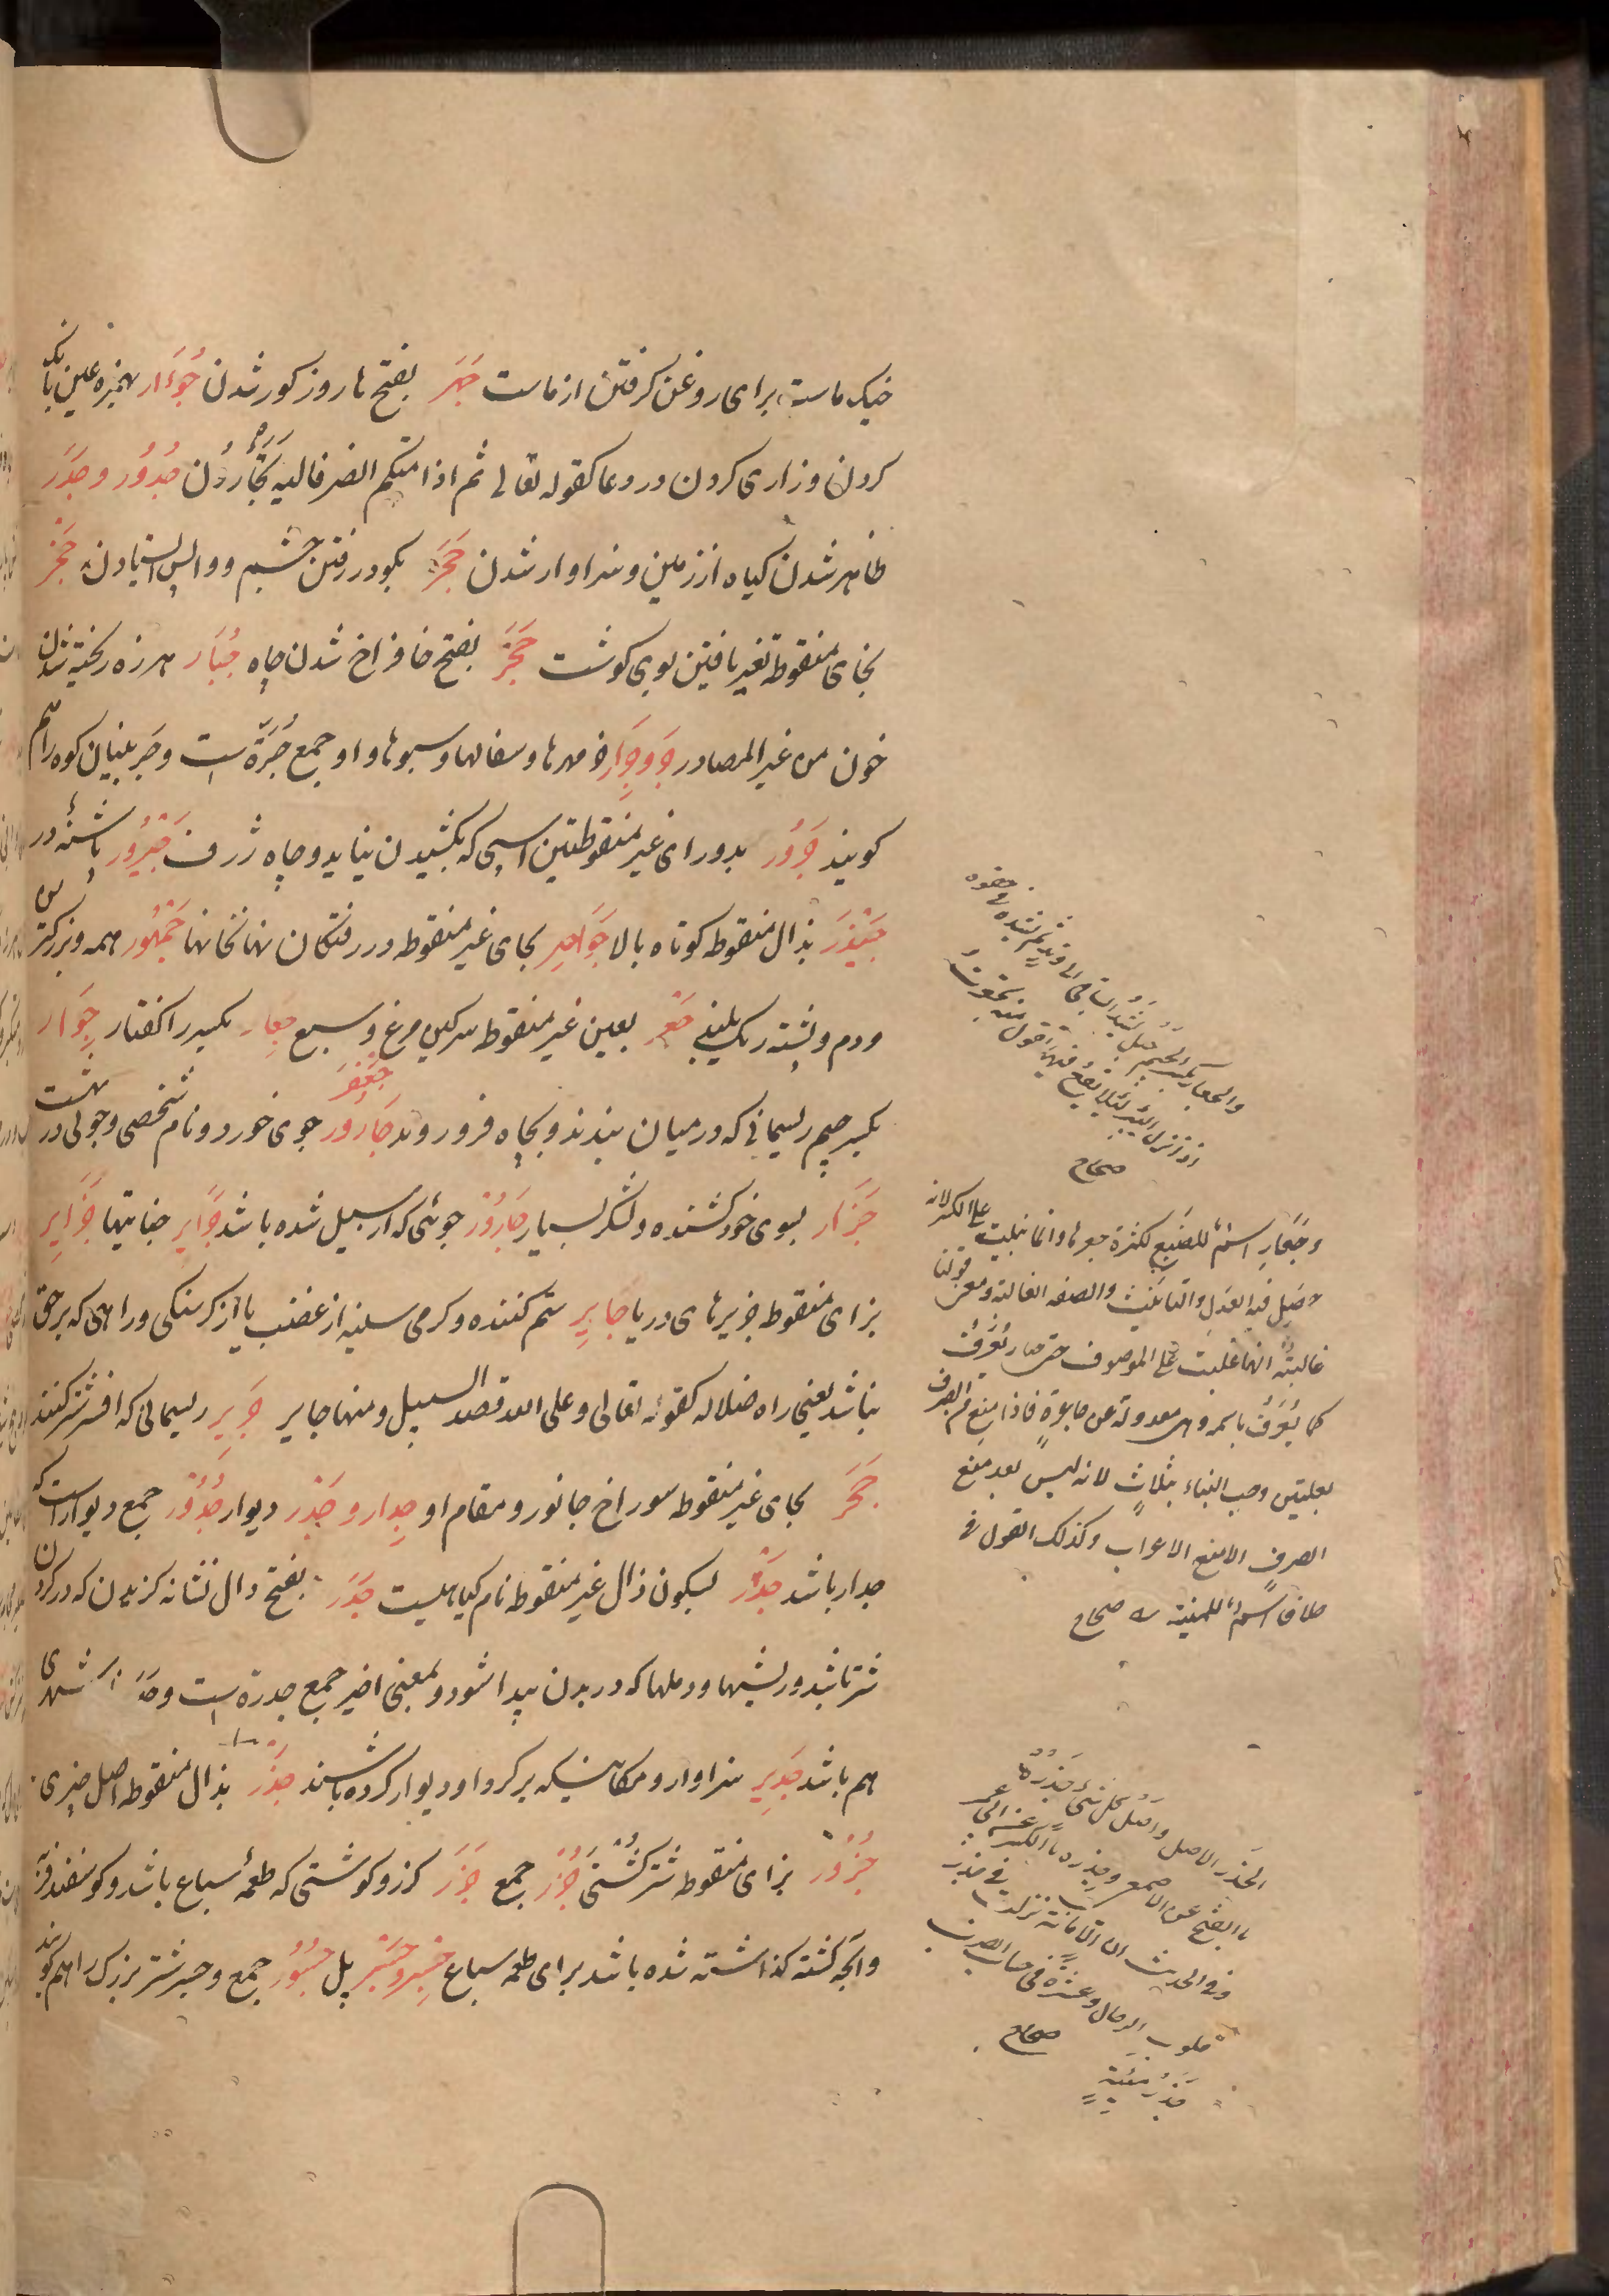 خیک ماست برای روغن کرفتن از ماست جَهَر بفتح ها روز کور شدن جُوَءَار بهمزه عین بانک
کردن و زاری کردن در دعا کقوله تعالی ثم اذا مسّکم الضر فالیه تجأرون جُدُوْر و جَدَر
ظاهر شدن کیاه از زمین و سزاوار شدن حَجَر بکو در رفتن چشم و واپس ایستادن جَخْر
بخای منقوطه تغیر یافتن بوی کوشت جَخَر بفتح خا فراخ شدن چاه جُبَار هرزه ریخته شدن
خون من غیر المصادر جَر وجِرَار خمرها و سفالها و سبوها و او جمع جَرَّة است و جر پنیان کوه را هم
کویند جَرُوْر بدو رای غیر منقوطتین اسپی که بکشیدن نیاید و چاه ژرف جَیْرُوْر پاشنه در
جَیْذَر بذال منقوطه کوتاه بالا جَوَاحِر بحای غیر منقوطه در رفتکان نهانخانها جُمْهُور همه و بزرکتر
ودم و پشته ریک بلند جَعْر بعین غیر منقوطه سرکین مرغ و سبع جِعَار بکسر را کفتار جِوَار
بکسر جیم ریسمانی که در میان بندند و بچاه فرو روند جَارُوْر جَعْفَر جوی خورد و نام شخصی و جوئی در بهشت
جَرَّار بسوی خود کشنده و لشکر بسیار جَارُوْر جوئی که از سیل شده باشد جَرَایِر جنایتها جَزَایِر
بزای منقوطه جزیرهای دریا جَایِر ستم کننده و کرمی سینه از غضب یا از کرسنکی و راهی که بر حق
نباشد یعنی راه ضلاله کقوله تعالی وعلی الله قصد السبیل ومنها جایر جَرِیر ریسمانی که افسر شتر کنند
جُحَر بحای غیر منقوطه سوراخ جانور و مقام او جِدَار و جَدْر دیوار جُدُوْر جمع دیوار است که
جدار باشد جَدْر بسکون دال غیر منقوطه نام کیاهیست جَدَر بفتح دال نشانه کزیدن که در کردن
شتر باشد و ریشها و دملها که در بدن پیدا شود و بمعنی اخیر جمع جدرة است و جَدَر شهری
هم باشد جَدِیر سزاوار و مکانیکه بر کرد او دیوار کرده باشند جَذْر بذال منقوطه اصل چیزی
جَزُوْر بزای منقوطه شتر کشتنی جُزُر جمع جَزَر کزر و کوشتی که طعمه سباع باشد و کوسفند فربه
وانچه کشته کذاشته شده باشد برای طعمه سباع جِسْر و جَسْر پل جُسُوْر جمع و جسر شتر بزرک را هم کویند
والجعار بکسر الجیم حبل یشد الساقی الی وتد ثم یشده فی حقوه
اذا نزل البئر لئلا یقع فیها تقول منه تجعرت
صحاح
وجَعَارِ اسم للضبع لکثرة جعرها وانما بنیت علی الکسر لانه
حصل فیه العدل والتانیث والصفة الغالبة ومعنی قولنا
غالبة انها غلبت علی الموصوف حتی صار یُعرَف
کما یُعرَف باسمه وهی معدولة عن جاعرة فاذا منع من الصرف
بعلتین وجب البناء بثلاث لانه لیس بعد منع
الصرف الا منع الاعراب وکذلک القول فی
حلاق اسم للمنیة صحاح
الجذر الاصل واصل کل شئ جذره
بالفتح عن الاصمعی وجذره بالکسر عن ابی عمرو
وفی الحدیث ان الامانة نزلت فی جذر
قلوب الرجال وعشرة فی حساب الضرب
جَذرُ مئیةٍ
صحاح